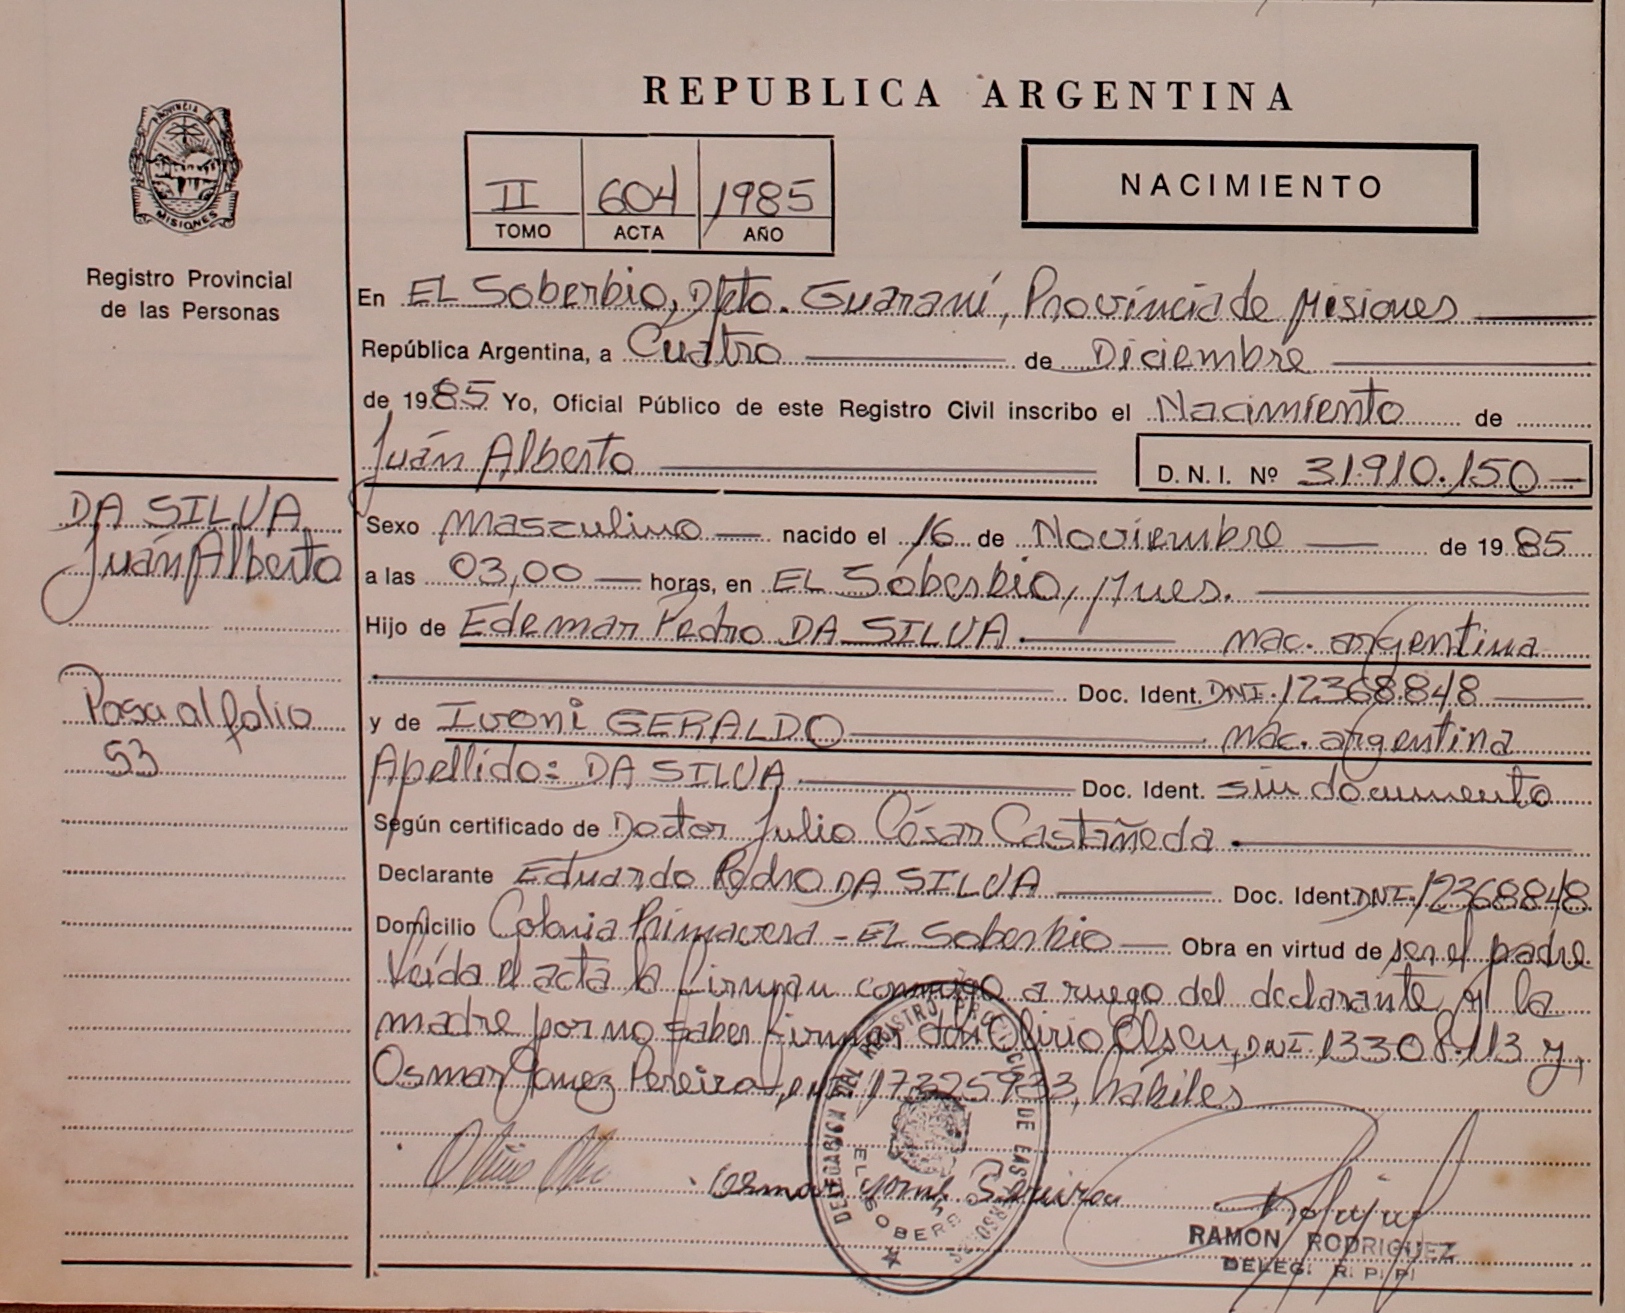 REPUBLICA ARGENTINA
PROVINCIA DE
MISIONES
Registro Provincial
de las Personas
II 604 1985
TOMO ACTA AÑO
NACIMIENTO
En EL Soberbio, Dpto. Guaraní, Provincia de Misiones
República Argentina, a Cuatro de Diciembre
de 1985 Yo, Oficial Público de este Registro Civil inscribo el Nacimiento de
Juán Alberto D. N. I. Nº 31.910.150
DA SILVA
Juán Alberto
Sexo Masculino nacido el 16 de Noviembre de 1985
a las 03,00 horas, en EL Soberbio, Mnes.
Hijo de Edemar Pedro DA SILVA nac. argentina
Doc. Ident. DNI. 12368.848
Pasa al folio
53
y de Ivoni GERALDO nac. argentina
Apellido: DA SILVA Doc. Ident. sin documento
Según certificado de Doctor Julio César Castañeda
Declarante Eduardo Pedro DA SILVA Doc. Ident. DNI. 12368848
Domicilio Colonia Primavera - EL Soberbio Obra en virtud de ser el padre
Leída el acta la firman conmigo a ruego del declarante y la
madre por no saber firmar don Olirio Olsen, DNI. 13308.113 y,
Osmar Gomez Pereira, DNI 17325933, hábiles
DELEGACION DEL REGISTRO PROVINCIAL DE LAS PERSONAS
EL SOBERBIO
Pereira
RAMON RODRIGUEZ
DELEG. R. P. P.